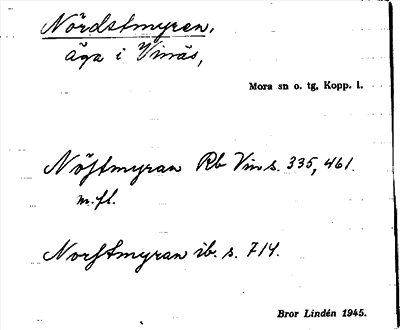 Nördstmyren,
äga i Vinäs,
Mora sn o. tg, Kopp. l.
Nöstmyran Rb Vin s. 335, 461.
m.fl.
Norstmyran ib. s. 714.
Bror Lindén 1945.